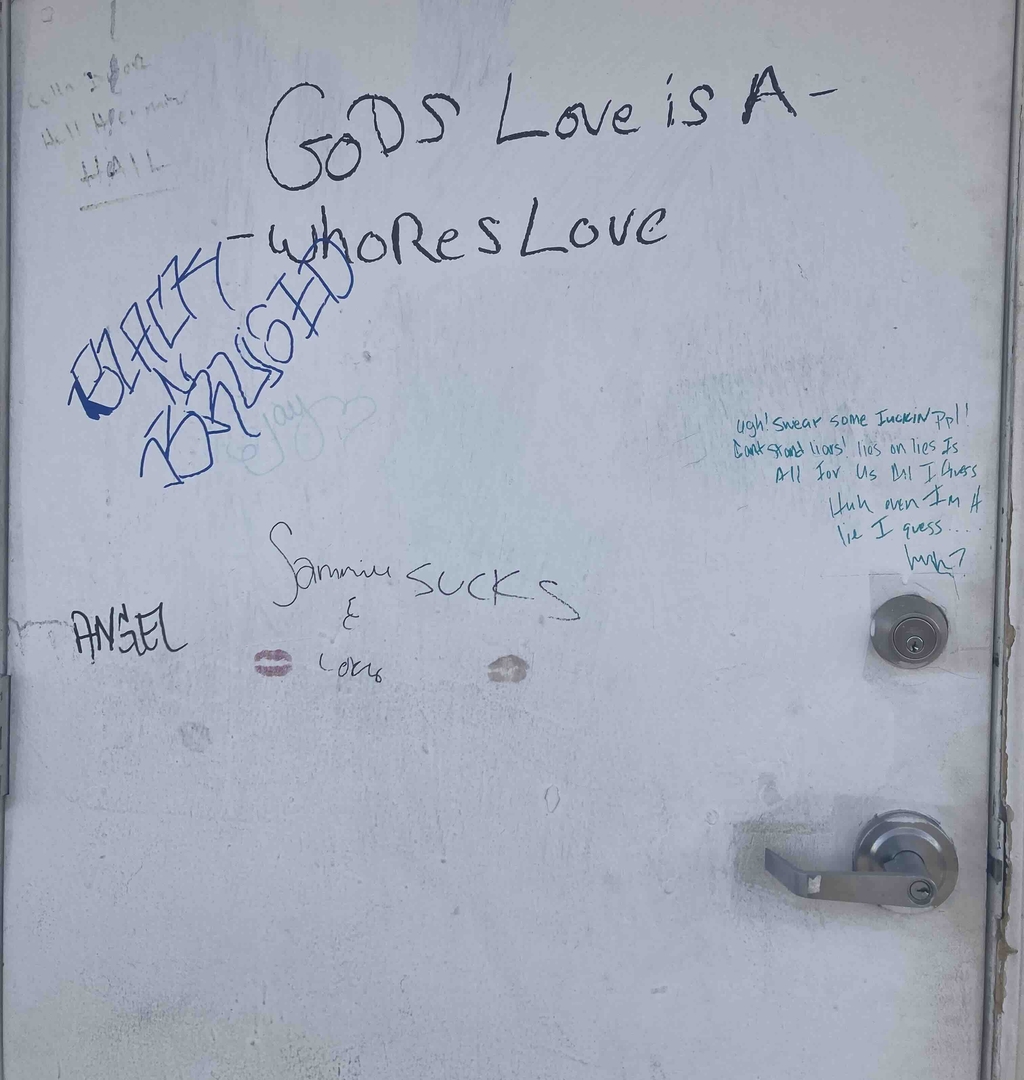 HAIL
GODS Love is A-
-whoRes Love
BLACK
N
BRUISED
Jay
ugh! swear some fuckin ppl!
Cant stand liars! lies on lies Is
All for us I Guess
Huh even Im A
lie I guess....
huh?
Sammie SUCKS
&
ANGEL